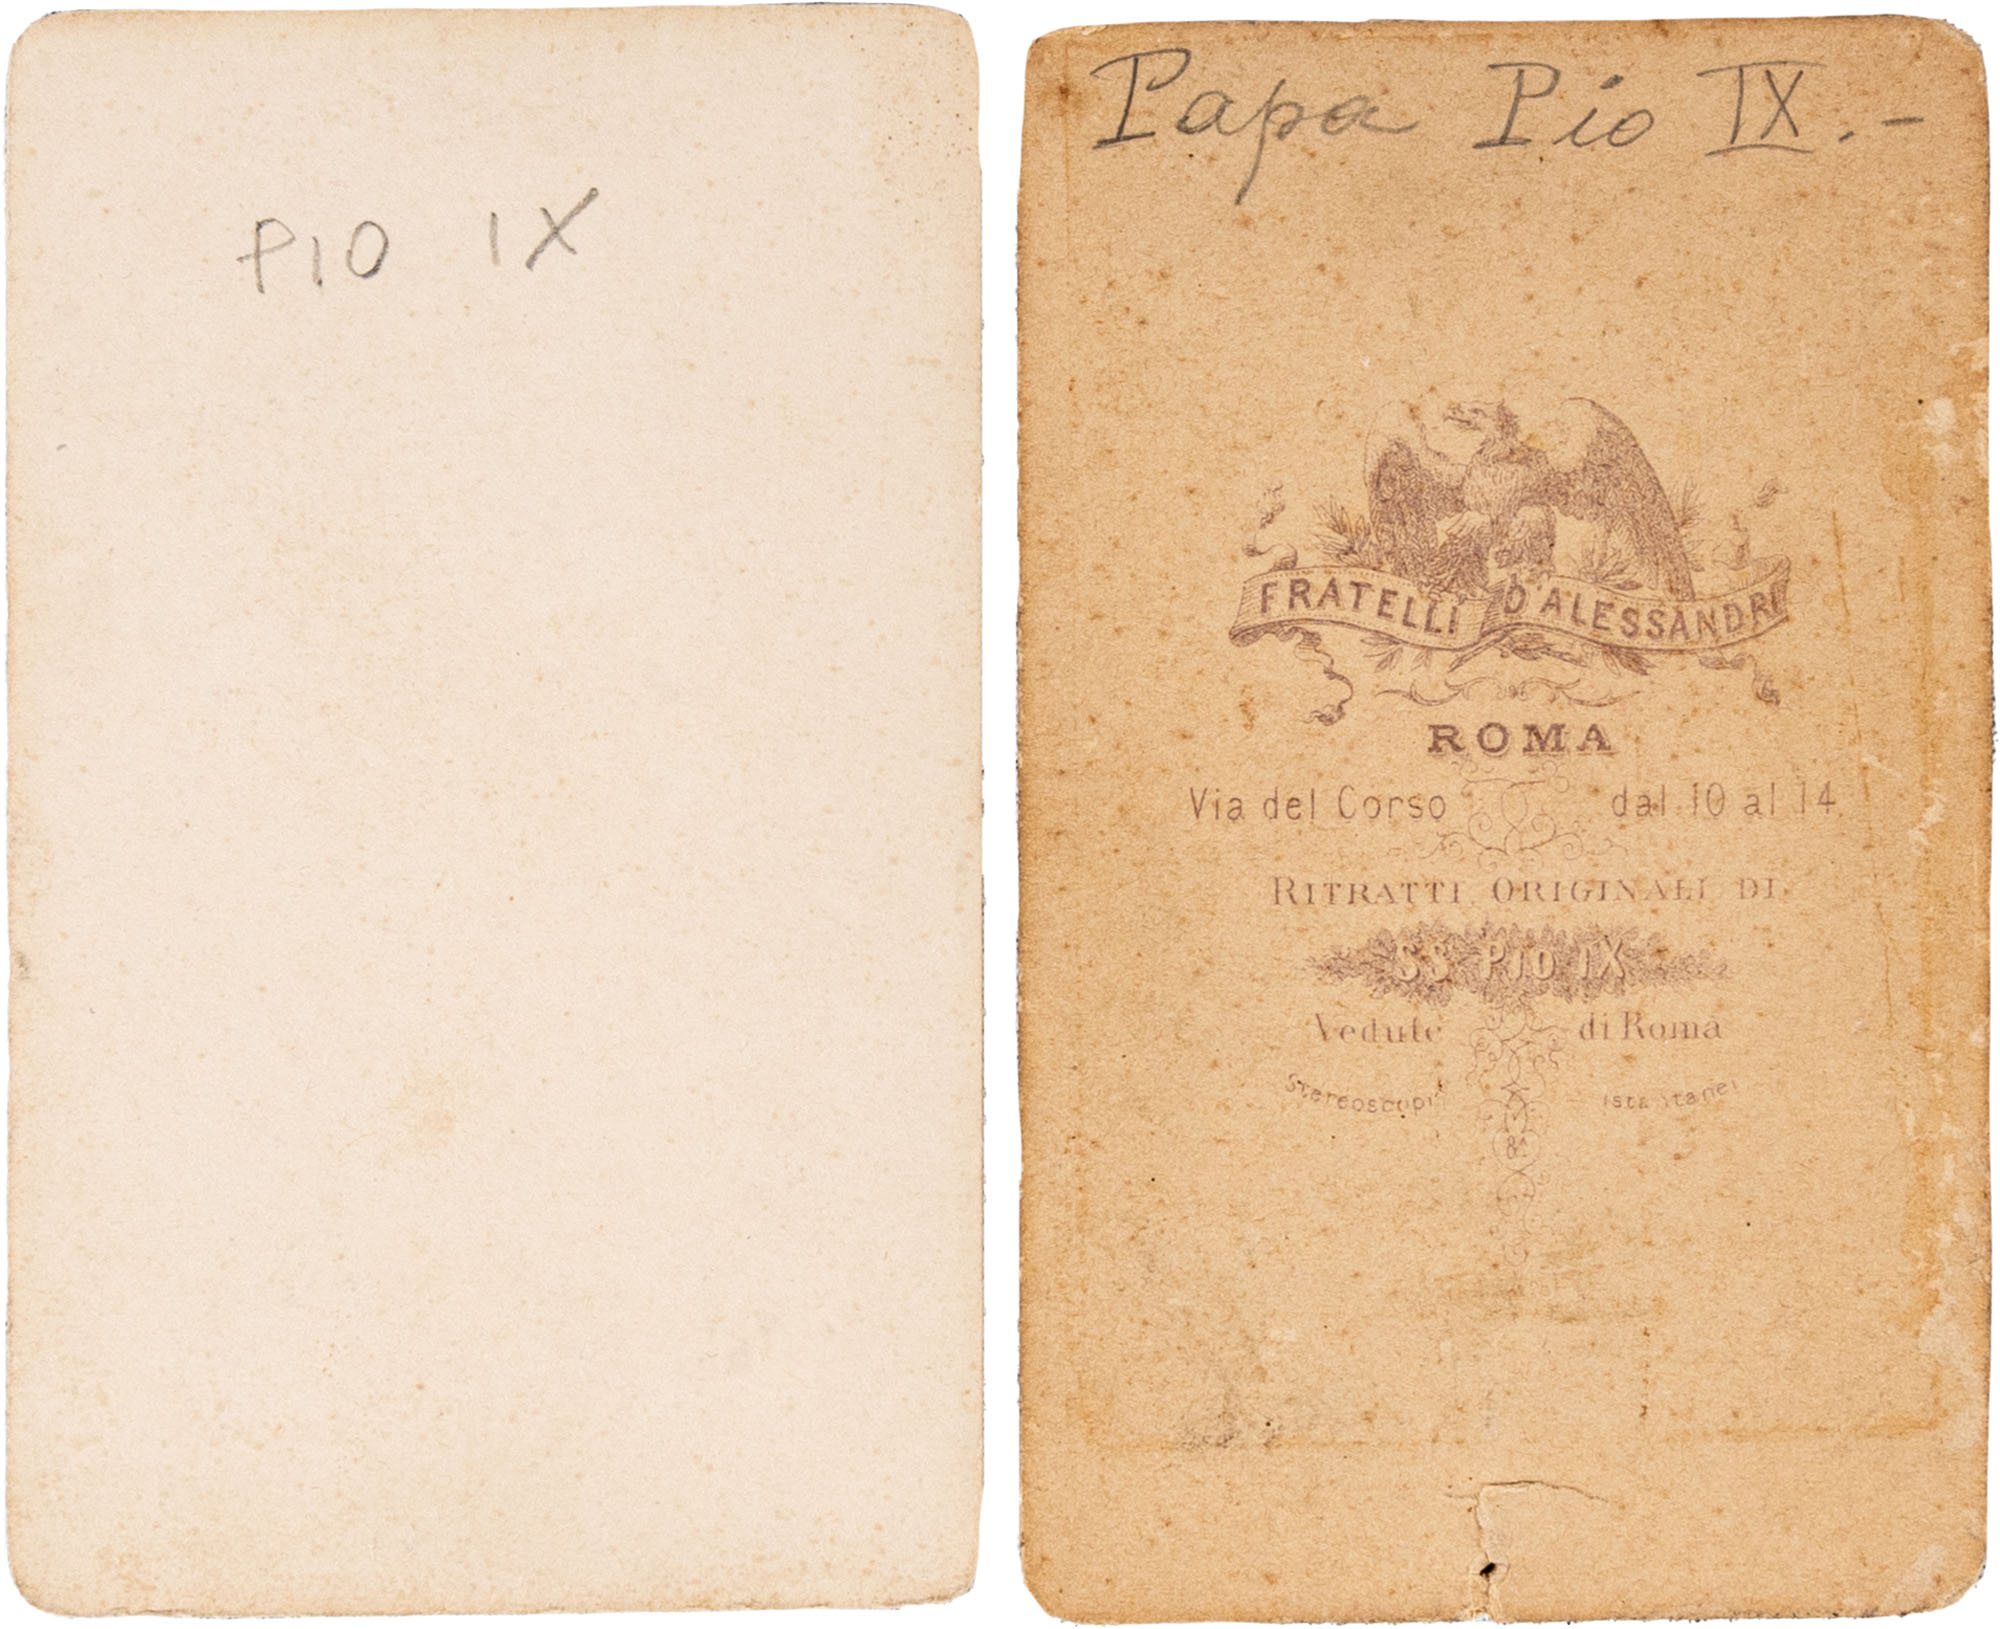 PIO IX
Papa Pio IX.-
FRATELLI D'ALESSANDRI
ROMA
Via del Corso dal 10 al 14
RITRATTI ORIGINALI DI
SS PIO IX
Vedute di Roma
Stereoscopie istantanei